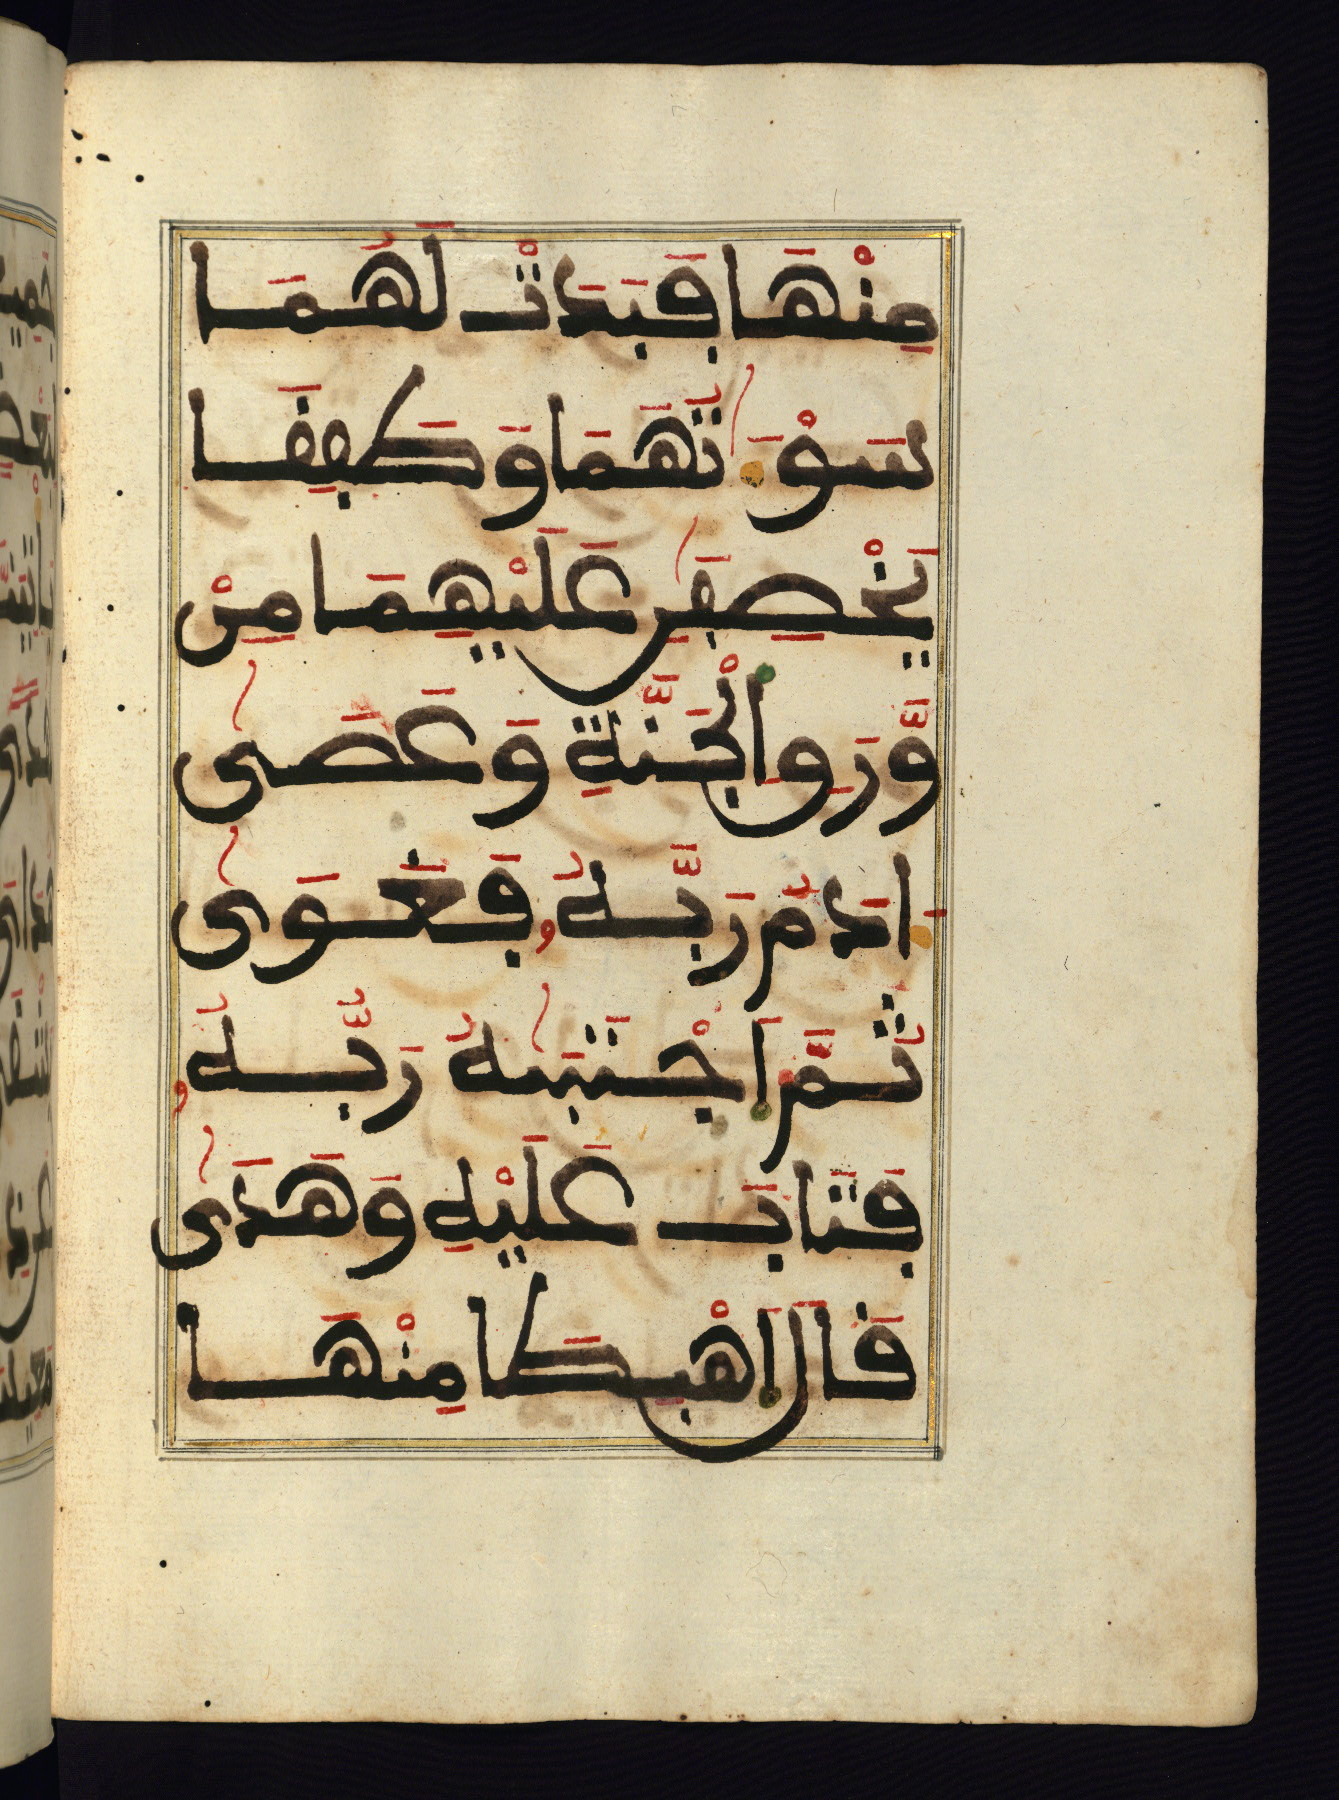 مِنْهَا فَبَدَتْ لَهُمَا
سَوْءَٰتُهُمَا وَطَفِقَا
يَخْصِفَٰنِ عَلَيْهِمَا مِنْ
وَّرَقِ اِ۬لْجَنَّةِ وَعَصَىٰ
ءَادَمُ رَبَّهُۥ فَغَوَىٰ
ثُمَّ اَ۪جْتَبَٰهُ رَبُّهُۥ
فَتَابَ عَلَيْهِ وَهَدَىٰ
قَالَ اَ۪هْبِطَا مِنْهَا